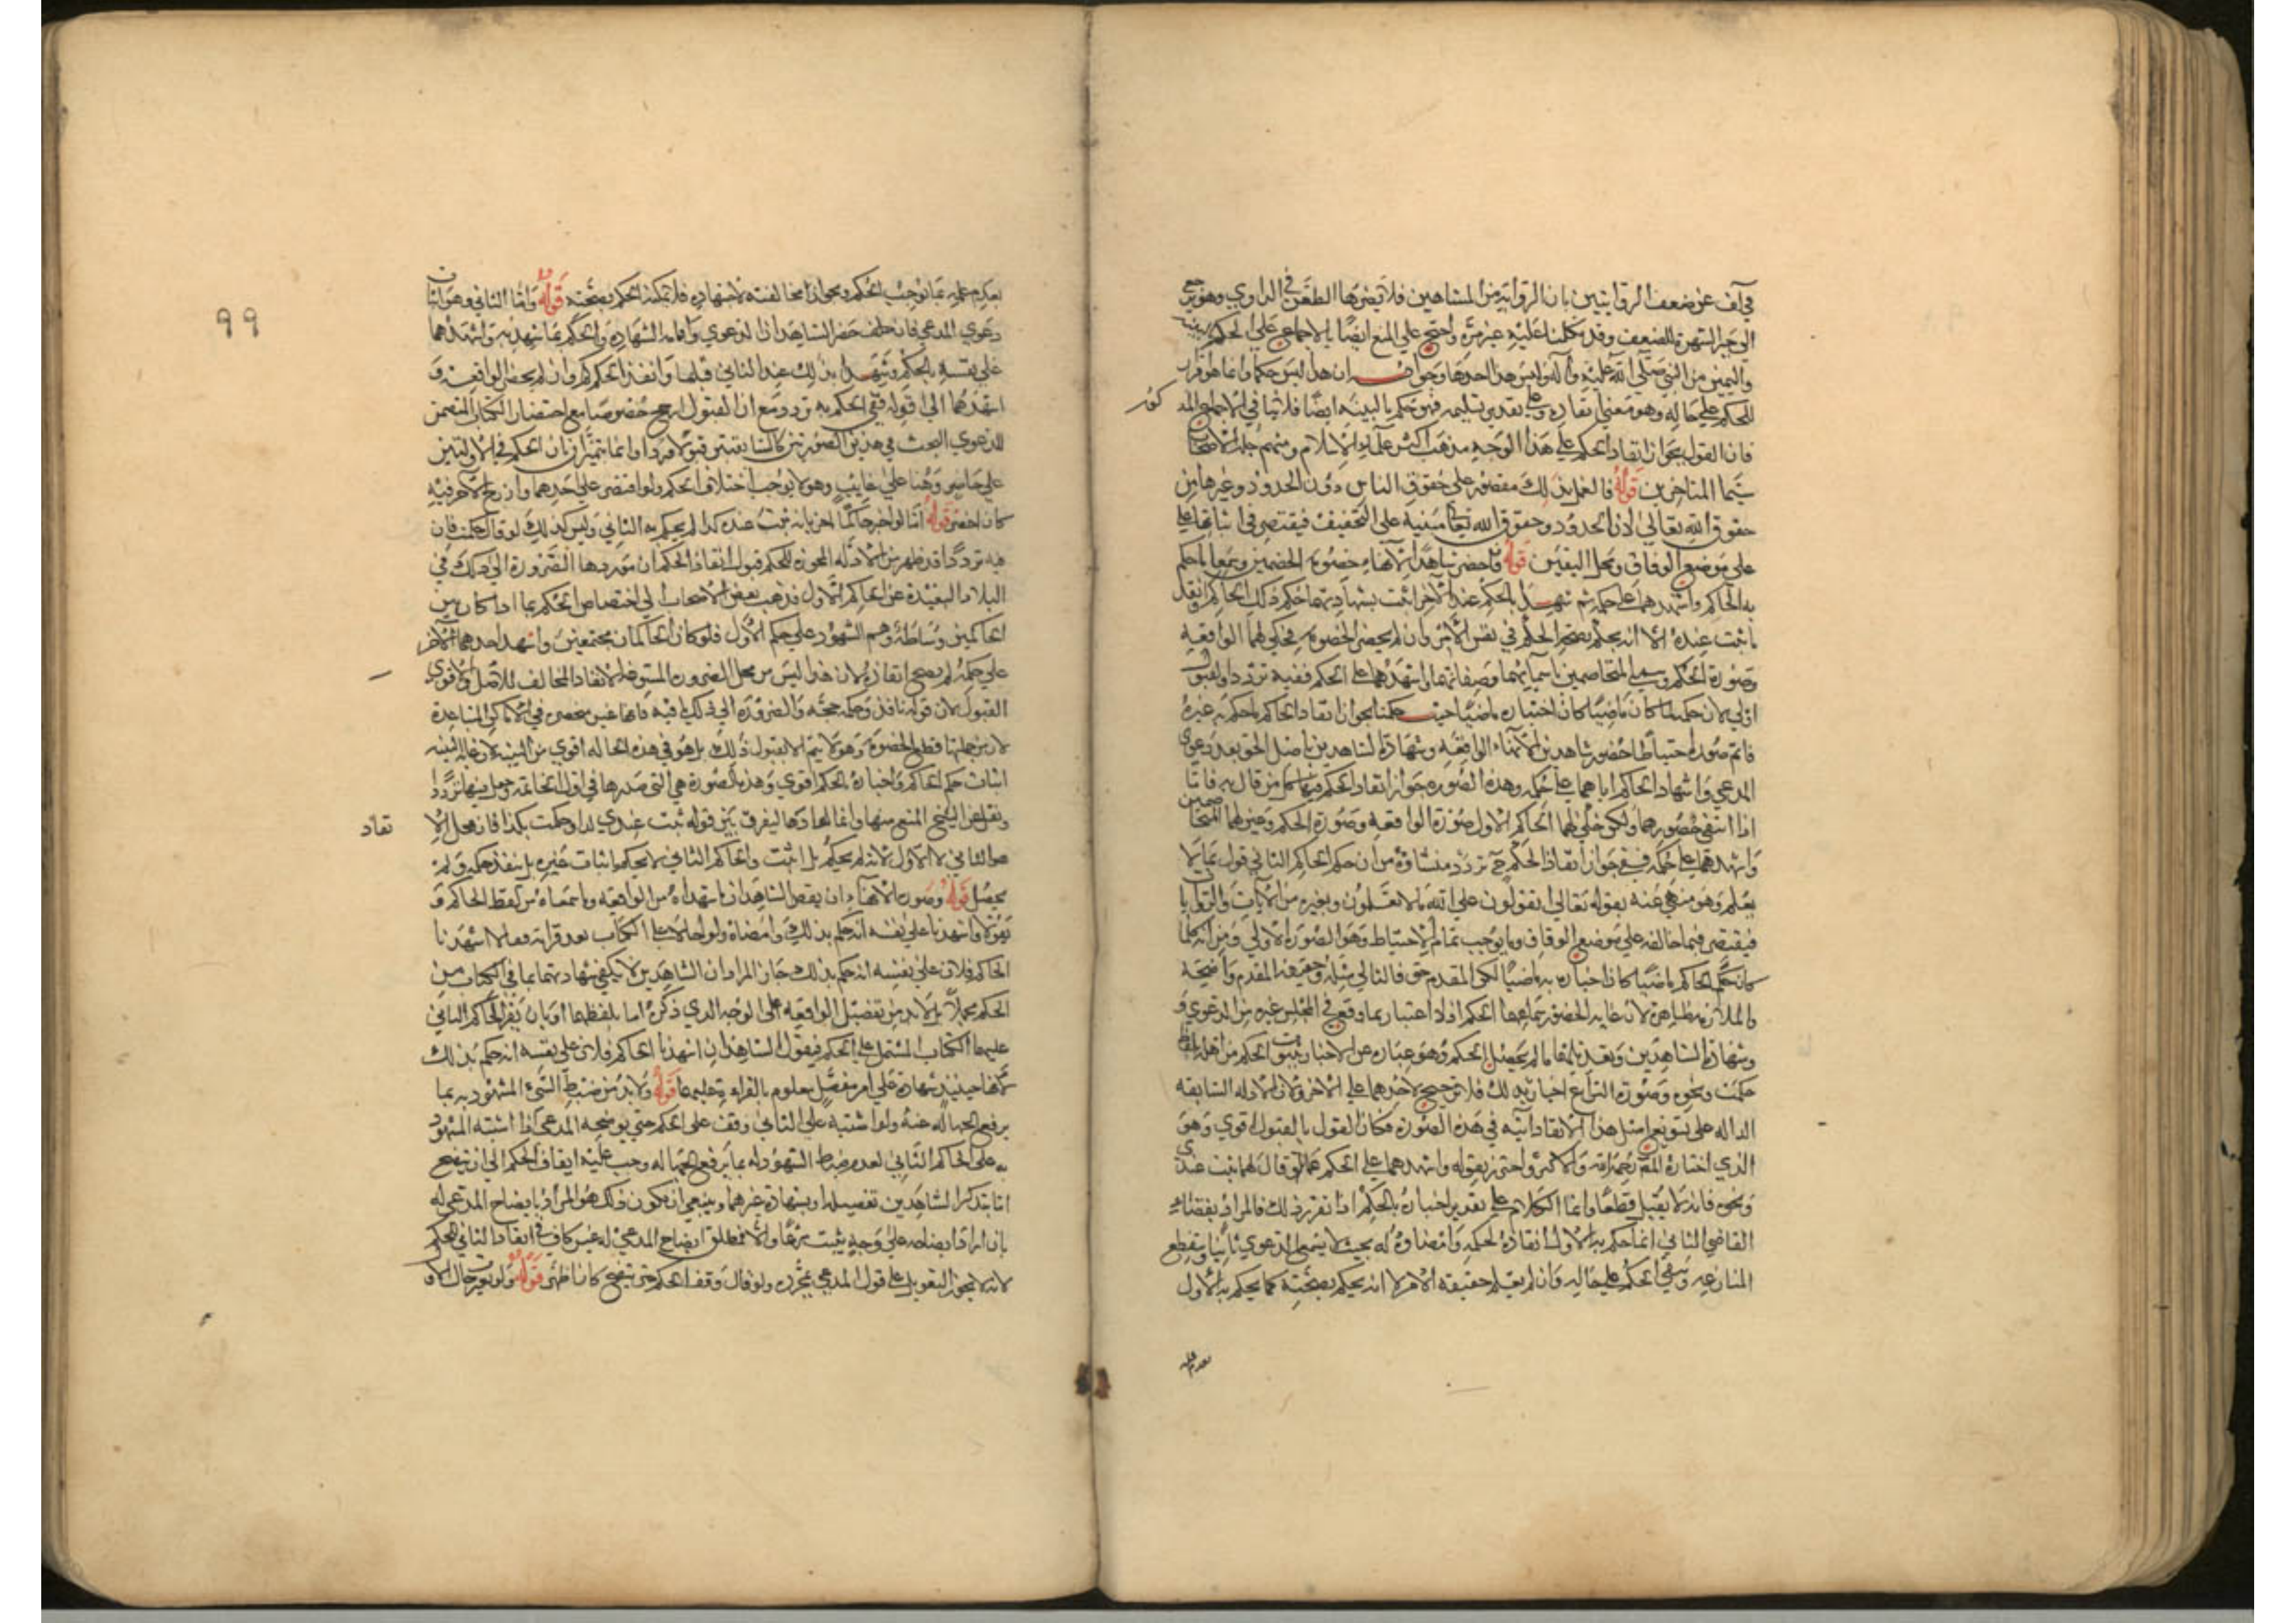 في آف عن ضعف الروايتين بان الرواية من المشاهير فلا يضرها الطعن في الراوي وهو يرجع
الى جبر الشهرة للضعف وقد تكلمنا عليه غير مرة واحتج على المنع ايضا بالاجماع على الحكم بالبينة
واليمين من النبي صلى الله عليه وآله وليس هذا احدها وجوابه ان هذا ليس حكما وانما هو اقرار
للحكم على حاله وهو معنى انفاذه وعلى تقدير تسليمه فهو حكم بالبينه ايضا فلا ينافي الاجماع المذ
كور
فان القول بجواز انفاذ الحكم على هذا الوجه مذهب اكثر علماء الاسلام ومنهم جلة الاصحاب
سيما المتاخرين قوله فالعمل بذلك مقصور على حقوق الناس دون الحدود وغيرها من
حقوق الله تعالى لان الحدود وحقوق الله تعالى مبنية على التخفيف فيقتصر في اثباتها على
على موضع الوفاق ومحل اليقين قوله فاحضر شاهدا الانهاء خصومة الخصمين وسمعا ما حكم
به الحاكم واشهدهما على حكمه ثم شهدا بالحكم عند الآخر اثبت بشهادتهما حكم ذلك الحاكم وانفذ
ما ثبت عنده الا انه يحكم بصحة الحكم في نفس الامر وان لم يحضر الخصومة فحكى لهما الواقعة
وصورة الحكم وسمى المتخاصمين باسمائهما وصفاتهما واشهدهما على الحكم ففيه تردد والقبول
اولى لان حكمه لما كان ماضيا كان اخباره ماضيا حيث حكمنا بجواز انفاذ الحاكم ما حكم به غيره
فاتم صوره احتياطا حضور شاهدين الانهاء الواقعة وشهادة الشاهدين باصل الحق بعد دعوى
المدعي واشهاد الحاكم اياهما على حكمه وهذه الصوره جواز انفاذ الحكم فيها من قال به فاما
اذا انتفى حضورهما ولكن حكى لهما الحاكم الاول صورة الواقعه وصورة الحكم وعين لهما المتخاصمين
واشهدهما على حكمه ففي جواز انفاذ الحكم ح تردد منشاؤه من ان حكم الحاكم الثاني قول بما لا
يعلم وهو منهي عنه بقوله تعالى اتقولون على الله ما لا تعلمون وبغيره من الآيات والروايات
فيقتصر فيما خالفه على موضع الوفاق وما يوجب تمام الاحتياط وهو الصورة الاولى ومن انه كلما
كان حكم الحاكم ماضيا كان اخباره به ماضيا لكن المقدم حق فالتالي مثله وحقيقة المقدم واضحة
والملازمة ظاهرة لان غاية الحضور سماعهما الحكم اذ لا اعتبار بما وقع في المجلس غيره من الدعوى و
وشهادة الشاهدين وبعد يلفقها ما لم يحصل الحكم وهو عبارة عن الاخبار بثبوت الحكم من اهله بلفظ
حكمت ونحوه وصورة النزاع اخباره بذلك فلا ترجيح لاحدهما على الآخر ولان الادله السابقه
الداله على تسويغ مثل هذا الانفاذ آتية في هذه الصورة فكان القول بالقبول اقوى وهو
الذي اختاره المصنف رحمه الله والاكثر واحترز بقوله واشهدهما على الحكم عما لو قال لهما ثبت عندي
ونحوه فانه لا يقبل قطعا وانما الكلام على تقدير اخباره بالحكم اذا تقرر ذلك فالمراد بقضاء
القاضي الثاني انما حكم به الاول انفاذه لحكمه وامضاؤه له بحيث لا يسمع الدعوى ثانيا ويقطع
المنازعه ويبقى الحكم على حاله وان لم يعلم حقيقة الامر لا انه يحكم بصحته كما يحكم به الاول
لعدم علمه
٩٩
لعدم علمه بما يوجب الحكم وبجواز مخالفته لاجتهاده فلا يمكنه الحكم بصحته قوله واما الثاني وهو اثبات
دعوى المدعي فان حلف حضر الشاهدان الدعوى واقامة الشهادة والحكم بما شهد به واشهدهما
على نفسه بالحكم وشهدا بذلك عند الثاني قبلها وانفذ الحكم ولو لم يحضرا الواقعة و
اشهدهما الى قوله ففي الحكم به تردد مع ان القبول ارجح خصوصا مع احضار الكتاب المتضمن
للدعوى البحث في هذين الصورتين كالسابقتين قبولا وردا وانما يتميزان بان الحكم في الاولتين
على حاضر وهنا على غايب وهو لا يوجب اختلاف الحكم ولو اقتصر على احدهما وادرج الآخر فيه
كان اخصر قوله اما لو اخبر حاكما آخر بانه ثبت عنده كذا لم يحكم به الثاني وليس كذلك لو قال حكمت فان
فيه ترددا قد ظهر من الادله المجوزه للحكم قبول انفاذ الحكم ان موردها الضرورة الى ذلك في
البلاد البعيدة عن الحاكم الاول فذهب بعض الاصحاب الى اختصاص الحكم بما اذا كان بين
الحاكمين وساطة وهم الشهود على حكم الاول فلو كان الحاكمان مجتمعين واشهد احدهما الآخر
على حكمه لم يصح انفاذه لان هذا ليس من محل الضرورة المسوغة للانفاذ المخالف للاصل والاقوى
القبول لان قوله نافذ وحكمه حجة والضرورة الى ذلك فيه فانها غير منحصره في الاماكن المتباعدة
لان من جملتها قطع الخصومة وهو لا يتم الا بقبول ذلك بل هو في هذه الحاله اقوى من البينه لان غاية البينه
اثبات حكم الحاكم واخباره بالحكم اقوى وهذه الصورة هي التي صدرها في اول الخاتمه وجعل فيها ترددا
ونقل عن الشيخ المنع منها وانما اعادها ليفرق بين قوله ثبت عندي كذا وحكمت بكذا فان محل الا
نفاذ
هو الثاني لا الاول لانه لم يحكم بل اثبت والحاكم الثاني لا يحكم باثبات غيره بل ينفذ حكمه ولم
يحصل قوله وصورة الانهاء ان يقص الشاهدان ما شهداه من الواقعة وما سمعاه من لفظ الحاكم و
يقولا واشهدنا على نفسه انه حكم بذلك وامضاه ولو احالا على الكتاب بعد قراءته فقالا اشهدنا
الحاكم فلان على نفسه انه حكم بذلك جاز المراد ان الشاهدين لا يكفي شهادتهما بما في الكتاب من
الحكم مجملا بل لا بد من تفصيل الواقعه على الوجه الذي ذكره اما بلفظهما او بان يقرا الحاكم الثاني
عليهما الكتاب المشتمل على الحكم فيقول الشاهدان اشهدنا الحاكم فلان على نفسه انه حكم بذلك
لانها حينئذ شهادة على امر مفصل معلوم بالقراءة عليهما قوله ولا بد من ضبط الشيء المشهود به بما
يرفع الجهاله عنه ولو اشتبه على الثاني وقف على الحكم حتى يوضحه المدعي اذا اشتبه المشهود
به على الحاكم الثاني لعدم ضبط الشهود له بما يرفع الجهاله وجب عليه ايقاف الحكم الى ان يتضح
اما بتذكر الشاهدين تفصيله او بشهادة غيرهما وينبغي ان يكون ذلك هو المراد بايضاح المدعي له
بان اراد ايضاحه على وجه يثبت شرعا والا فمطلق ايضاح المدعي له غير كاف في انفاذ الثاني الحكم
لانه لا يجوز التعويل على قول المدعي بمجرده ولو قال وقف الحكم حتى يتضح كان اظهر قوله ولو تغير حال الاو